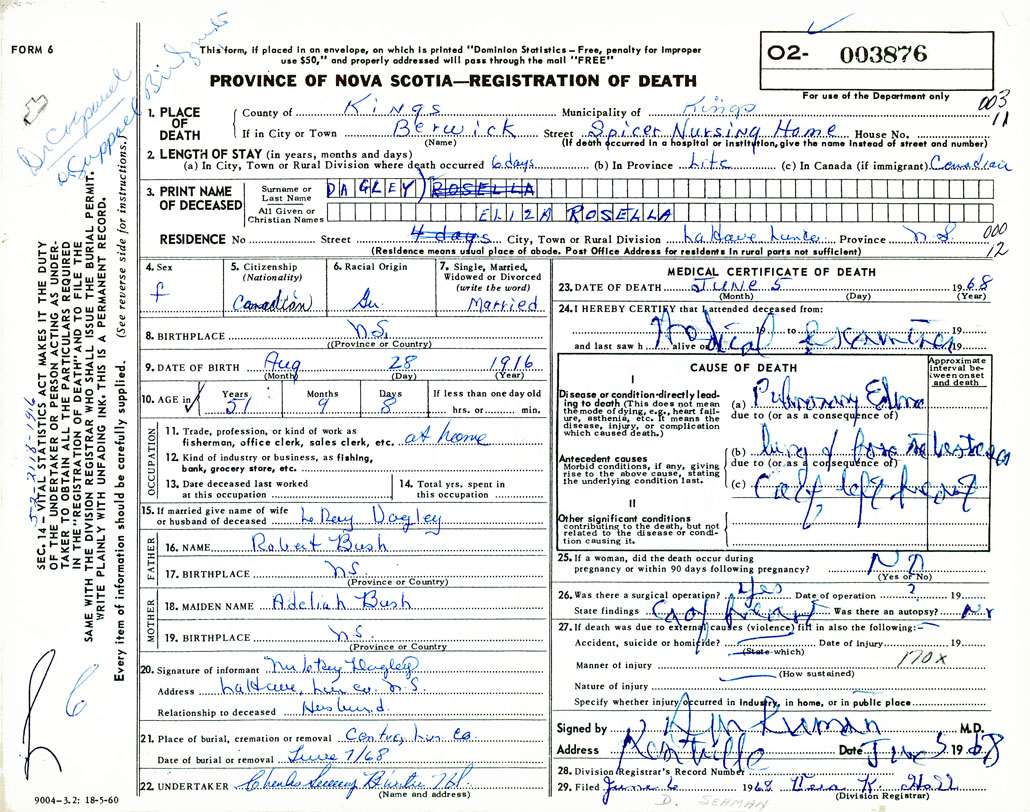 FORM 6
This form, if placed in an envelope, on which is printed "Dominion Statistics – Free, penalty for improper
use $50," and properly addressed will pass through the mail "FREE"
PROVINCE OF NOVA SCOTIA—REGISTRATION OF DEATH
O2- 003876
For use of the Department only
003
11
SEC. 14 – VITAL STATISTICS ACT MAKES IT THE DUTY
OF THE UNDERTAKER OR PERSON ACTING AS UNDER-
TAKER TO OBTAIN ALL THE PARTICULARS REQUIRED
IN THE "REGISTRATION OF DEATH" AND TO FILE THE
SAME WITH THE DIVISION REGISTRAR WHO SHALL ISSUE THE BURIAL PERMIT.
WRITE PLAINLY WITH UNFADING INK. THIS IS A PERMANENT RECORD.
Every item of information should be carefully supplied. (See reverse side for instructions.)
1. PLACE OF DEATH
County of Kings Municipality of Kings
If in City or Town Berwick Street Spicer Nursing Home House No.
(Name) (If death occurred in a hospital or institution, give the name instead of street and number)
2. LENGTH OF STAY (in years, months and days)
(a) In City, Town or Rural Division where death occurred 6 days (b) In Province Life (c) In Canada (if immigrant) Canadian
3. PRINT NAME OF DECEASED
Surname or Last Name DAGLEY ROSELLA
All Given or Christian Names ELIZA ROSELLA
RESIDENCE No Street 4 days City, Town or Rural Division LaHave Lunco Province N.S.
000
12
(Residence means usual place of abode. Post Office Address for residents in rural parts not sufficient)
4. Sex F
5. Citizenship (Nationality) Canadian
6. Racial Origin Ger.
7. Single, Married, Widowed or Divorced (write the word) Married
8. BIRTHPLACE N.S.
(Province or Country)
9. DATE OF BIRTH Aug 28 1916
(Month) (Day) (Year)
10. AGE in Years 51 Months 9 Days 8 If less than one day old hrs. or min.
OCCUPATION
11. Trade, profession, or kind of work as
fisherman, office clerk, sales clerk, etc. at home
12. Kind of industry or business, as fishing,
bank, grocery store, etc.
13. Date deceased last worked
at this occupation
14. Total yrs. spent in
this occupation
15. If married give name of wife
or husband of deceased LeRoy Dagley
FATHER
16. NAME Robert Bush
17. BIRTHPLACE N.S.
(Province or Country)
MOTHER
18. MAIDEN NAME Adeliah Bush
19. BIRTHPLACE N.S.
(Province or Country
20. Signature of informant Mr LeRoy Dagley
Address LaHave, Lun. co. N.S.
Relationship to deceased Husband.
21. Place of burial, cremation or removal Lun Co.
Date of burial or removal June 7/68
22. UNDERTAKER Charles
(Name and address)
9004–3.2: 18-5-60
MEDICAL CERTIFICATE OF DEATH
23. DATE OF DEATH JUNE 5 1968
(Month) (Day) (Year)
24. I HEREBY CERTIFY that I attended deceased from:
19 to 19
and last saw h alive on 19
Medical Examiner
CAUSE OF DEATH
Approximate interval between onset and death
I
Disease or condition directly leading to death (This does not mean the mode of dying, e.g., heart failure, asthenia, etc. It means the disease, injury, or complication which caused death.)
(a) Pulmonary Edema
due to (or as a consequence of)
Antecedent causes
Morbid conditions, if any, giving rise to the above cause, stating the underlying condition last.
(b) lung
due to (or as a consequence of)
(c) Ca of left breast
II
Other significant conditions
contributing to the death, but not related to the disease or condition causing it.
25. If a woman, did the death occur during
pregnancy or within 90 days following pregnancy? No
(Yes or No)
26. Was there a surgical operation? Yes Date of operation ? 19
State findings Ca of breast Was there an autopsy? No
27. If death was due to external causes (violence) fill in also the following:–
Accident, suicide or homicide? Date of injury 19
(State which)
Manner of injury 170X
(How sustained)
Nature of injury
Specify whether injury occurred in industry, in home, or in public place
Signed by M.D.
Address Kentville Date June 5 1968
28. Division Registrar's Record Number
29. Filed June 6 1968 K. Hall
(Division Registrar)
D. SEAMAN